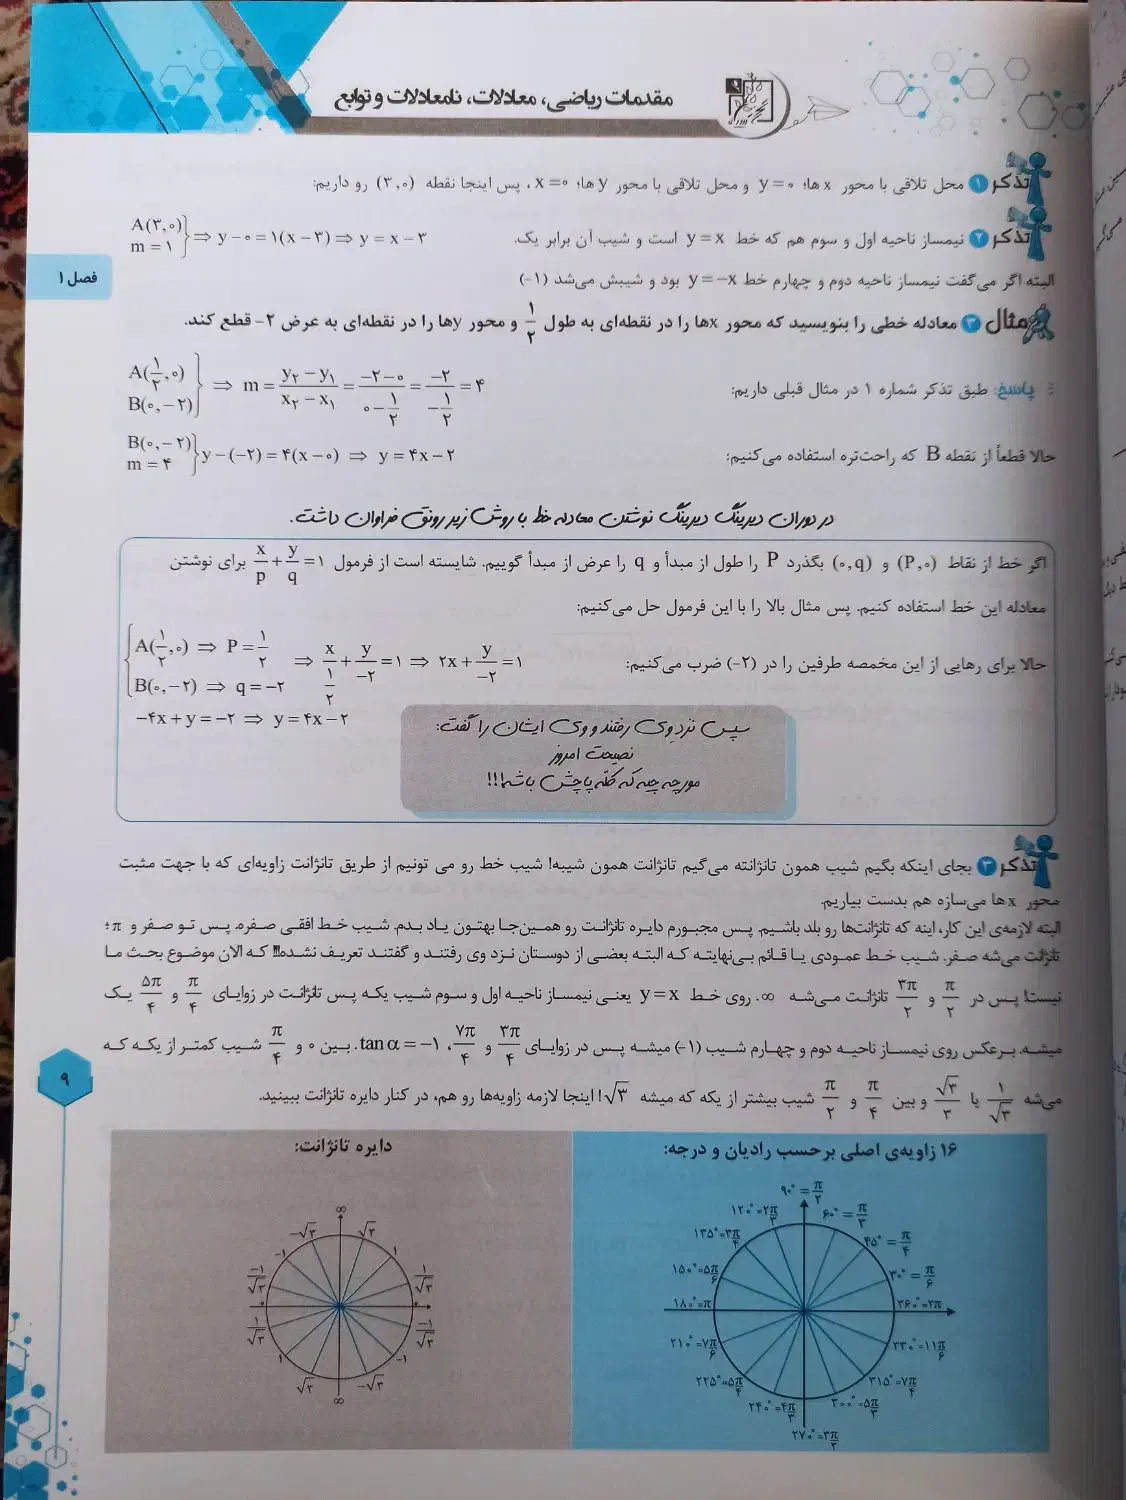 مقدمات ریاضی، معادلات، نامعادلات و توابع
تذکر ۱ محل تلاقی با محور xها؛ y=۰ و محل تلاقی با محور yها؛ x=۰، پس اینجا نقطه (۳,۰) رو داریم:
تذکر ۲ نیمساز ناحیه اول و سوم هم که خط y=x است و شیب آن برابر یک.
A(۳,۰)
m=۱
⇒ y-۰=۱(x-۳) ⇒ y=x-۳
البته اگر می‌گفت نیمساز ناحیه دوم و چهارم خط y=-x بود و شیبش می‌شد (-۱)
فصل ۱
مثال ۳ معادله خطی را بنویسید که محور xها را در نقطه‌ای به طول ۱/۲ و محور yها را در نقطه‌ای به عرض -۲ قطع کند.
پاسخ: طبق تذکر شماره ۱ در مثال قبلی داریم:
A(۱/۲,۰)
B(۰,-۲)
⇒ m = (y₂-y₁)/(x₂-x₁) = (-۲-۰)/(۰-۱/۲) = (-۲)/(-۱/۲) = ۴
حالا قطعاً از نقطه B که راحت‌تره استفاده می‌کنیم:
B(۰,-۲)
m=۴
y-(-۲)=۴(x-۰) ⇒ y=۴x-۲
در دوران دیرینگ دیرینگ نوشتن معادله خط با روش زیر رونق فراوان داشت.
اگر خط از نقاط (P,۰) و (۰,q) بگذرد P را طول از مبدأ و q را عرض از مبدأ گوییم. شایسته است از فرمول x/p + y/q = ۱ برای نوشتن
معادله این خط استفاده کنیم. پس مثال بالا را با این فرمول حل می‌کنیم:
حالا برای رهایی از این مخمصه طرفین را در (-۲) ضرب می‌کنیم:
A(۱/۲,۰) ⇒ P=۱/۲
B(۰,-۲) ⇒ q=-۲
⇒ x/(۱/۲) + y/-۲ = ۱ ⇒ ۲x + y/-۲ = ۱
-۴x+y=-۲ ⇒ y=۴x-۲
سپس نزد وی رفتند و وی ایشان را گفت:
نصیحت امروز
مورچه چیه که کله پاچش باشه!!!
تذکر ۳ بجای اینکه بگیم شیب همون تانژانته می‌گیم تانژانت همون شیبه! شیب خط رو می تونیم از طریق تانژانت زاویه‌ای که با جهت مثبت
محور xها می‌سازه هم بدست بیاریم.
البته لازمه‌ی این کار، اینه که تانژانت‌ها رو بلد باشیم. پس مجبورم دایره تانژانت رو همین‌جا بهتون یاد بدم. شیب خط افقی صفره. پس تو صفر و π؛
تانژانت می‌شه صفر. شیب خط عمودی یا قائم بی‌نهایته که البته بعضی از دوستان نزد وی رفتند و گفتند تعریف نشده!!! که الان موضوع بحث ما
نیست! پس در π/۲ و ۳π/۲ تانژانت می‌شه ∞. روی خط y=x یعنی نیمساز ناحیه اول و سوم شیب یکه پس تانژانت در زوایای π/۴ و ۵π/۴ یک
میشه. برعکس روی نیمساز ناحیه دوم و چهارم شیب (-۱) میشه پس در زوایای ۳π/۴ و ۷π/۴، tan α=-۱. بین ۰ و π/۴ شیب کمتر از یکه که
می‌شه ۱/√۳ یا √۳/۳ و بین π/۴ و π/۲ شیب بیشتر از یکه که میشه √۳! اینجا لازمه زاویه‌ها رو هم، در کنار دایره تانژانت ببینید.
۹
۱۶ زاویه‌ی اصلی برحسب رادیان و درجه:
۹۰°=π/۲
۶۰°=π/۳
۴۵°=π/۴
۳۰°=π/۶
۳۶۰°=۲π
۳۳۰°=۱۱π/۶
۳۱۵°=۷π/۴
۳۰۰°=۵π/۳
۲۷۰°=۳π/۲
۲۴۰°=۴π/۳
۲۲۵°=۵π/۴
۲۱۰°=۷π/۶
۱۸۰°=π
۱۵۰°=۵π/۶
۱۳۵°=۳π/۴
۱۲۰°=۲π/۳
دایره تانژانت:
∞
√۳
۱
۱/√۳
۰
-۱/√۳
-۱
-√۳
∞
√۳
۱
۱/√۳
۰
-۱/√۳
-۱
-√۳